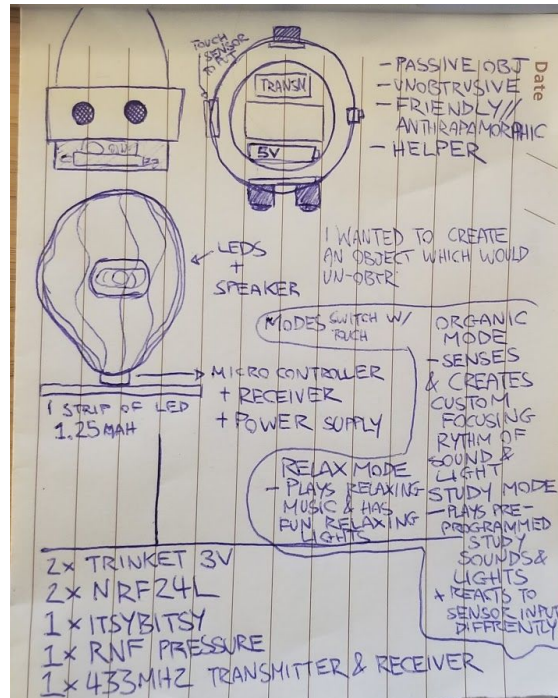 TOUCH
SENSOR
TRANSM
5V
Date
- PASSIVE OBJ
- UNOBTRUSIVE
- FRIENDLY//
ANTHRAPAMORPHIC
- HELPER
LEDS
+
SPEAKER
I WANTED TO CREATE
AN OBJECT WHICH WOULD
UN-OBTR
MICRO CONTROLLER
+ RECEIVER
+ POWER SUPPLY
1 STRIP OF LED
1.25 MAH
MODES SWITCH W/
TOUCH
ORGANIC
MODE
- SENSES
& CREATES
CUSTOM
FOCUSING
RYTHM OF
SOUND &
LIGHT
RELAX MODE
- PLAYS RELAXING
MUSIC & HAS
FUN RELAXING
LIGHTS
STUDY MODE
- PLAYS PRE-
PROGRAMMED
STUDY
SOUNDS &
LIGHTS
* REACTS TO
SENSOR INPUT
DIFFRENTLY
2x TRINKET 3V
2x NRF24L
1x ITSYBITSY
1x RNF PRESSURE
1x 433MHZ TRANSMITTER & RECEIVER